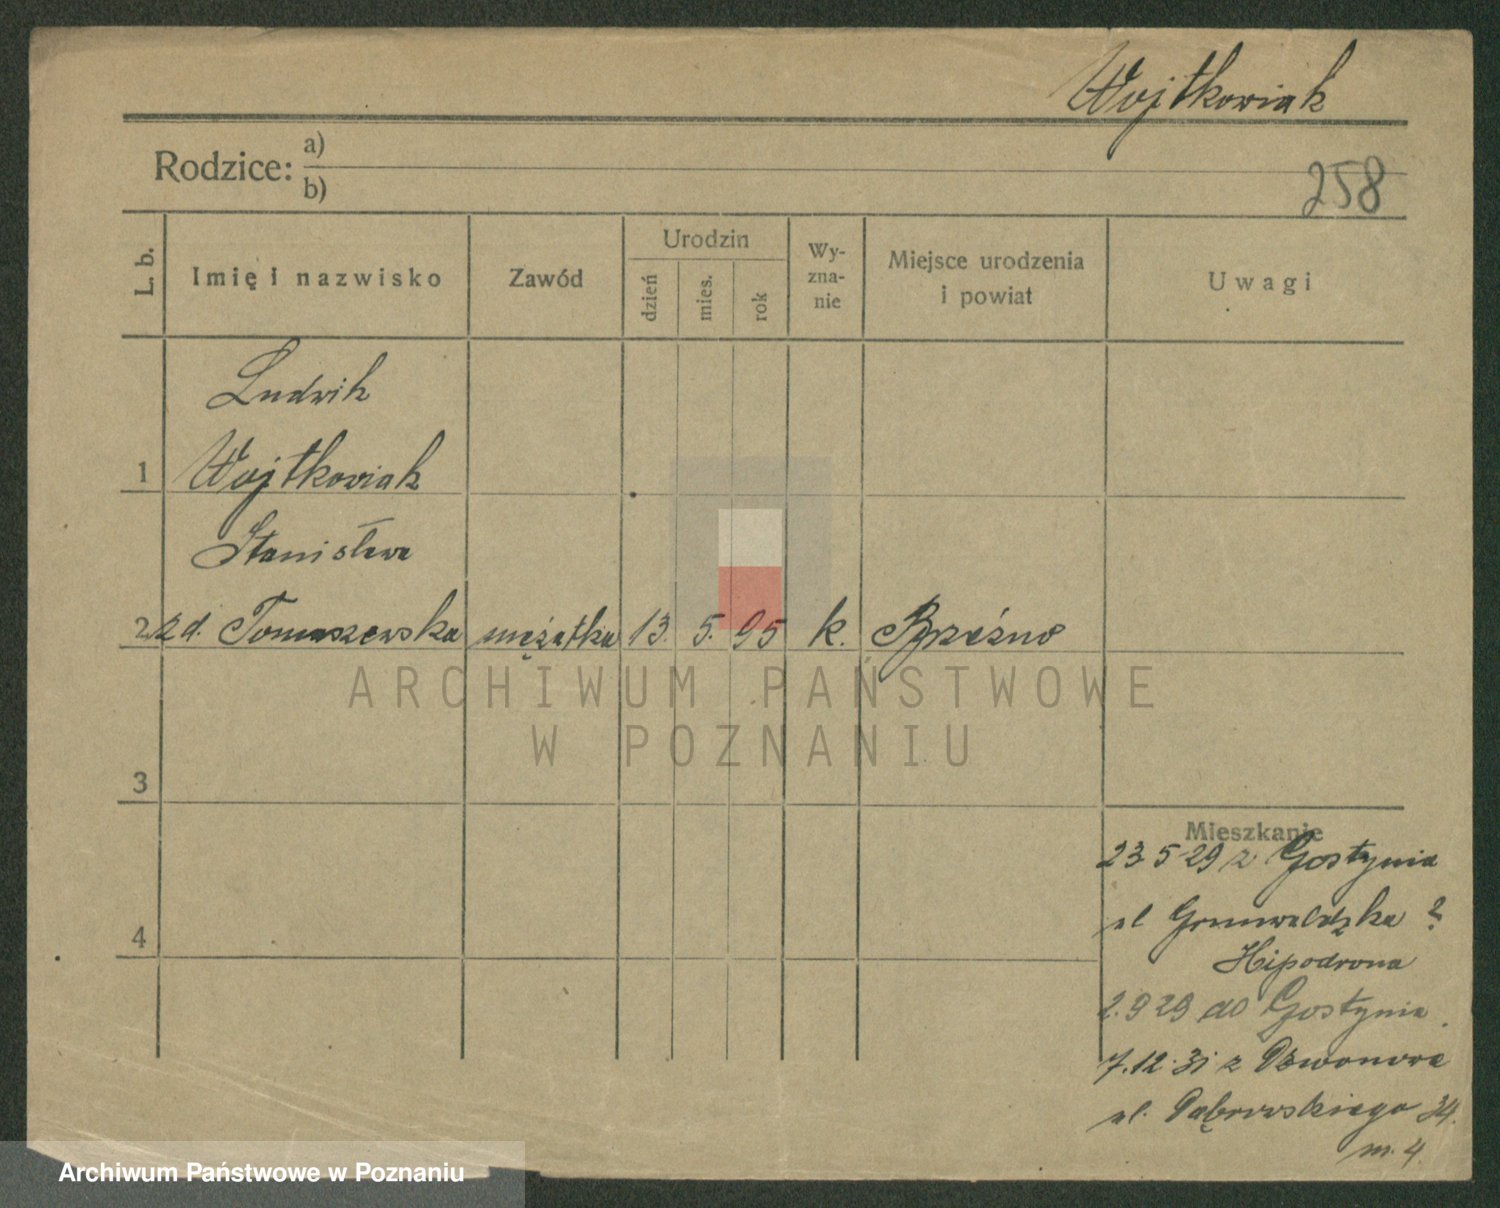 Wojtkowiak
Rodzice: a)
b)
258
L. b.
Imię i nazwisko
Zawód
Urodzin
dzień
mies.
rok
Wy-
zna-
nie
Miejsce urodzenia
i powiat
Uwagi
Ludwik
1 Wojtkowiak
Stanisława
2 zd. Tomaszewska mężatka 13. 5. 95 k. Brzeźno
ARCHIWUM PAŃSTWOWE
W POZNANIU
3
Mieszkanie
23 5 29 z Gostynia
ul Grunwaldzka ?
4
Hipodroma
2.9 29 do Gostynia.
7.12.31 z Dzwonowa
ul. Dąbrowskiego 34.
m. 4.
Archiwum Państwowe w Poznaniu